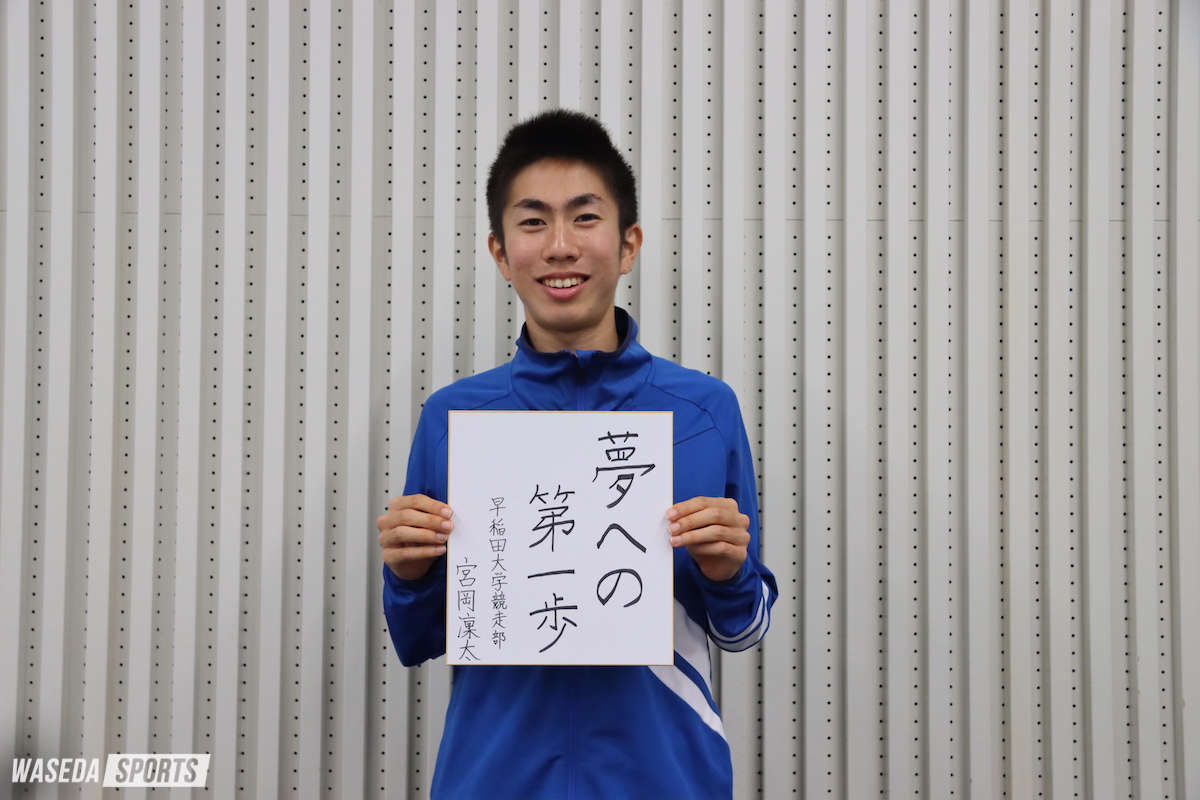 夢への
第一歩
早稲田大学競走部
宮岡凜太
WASEDA SPORTS